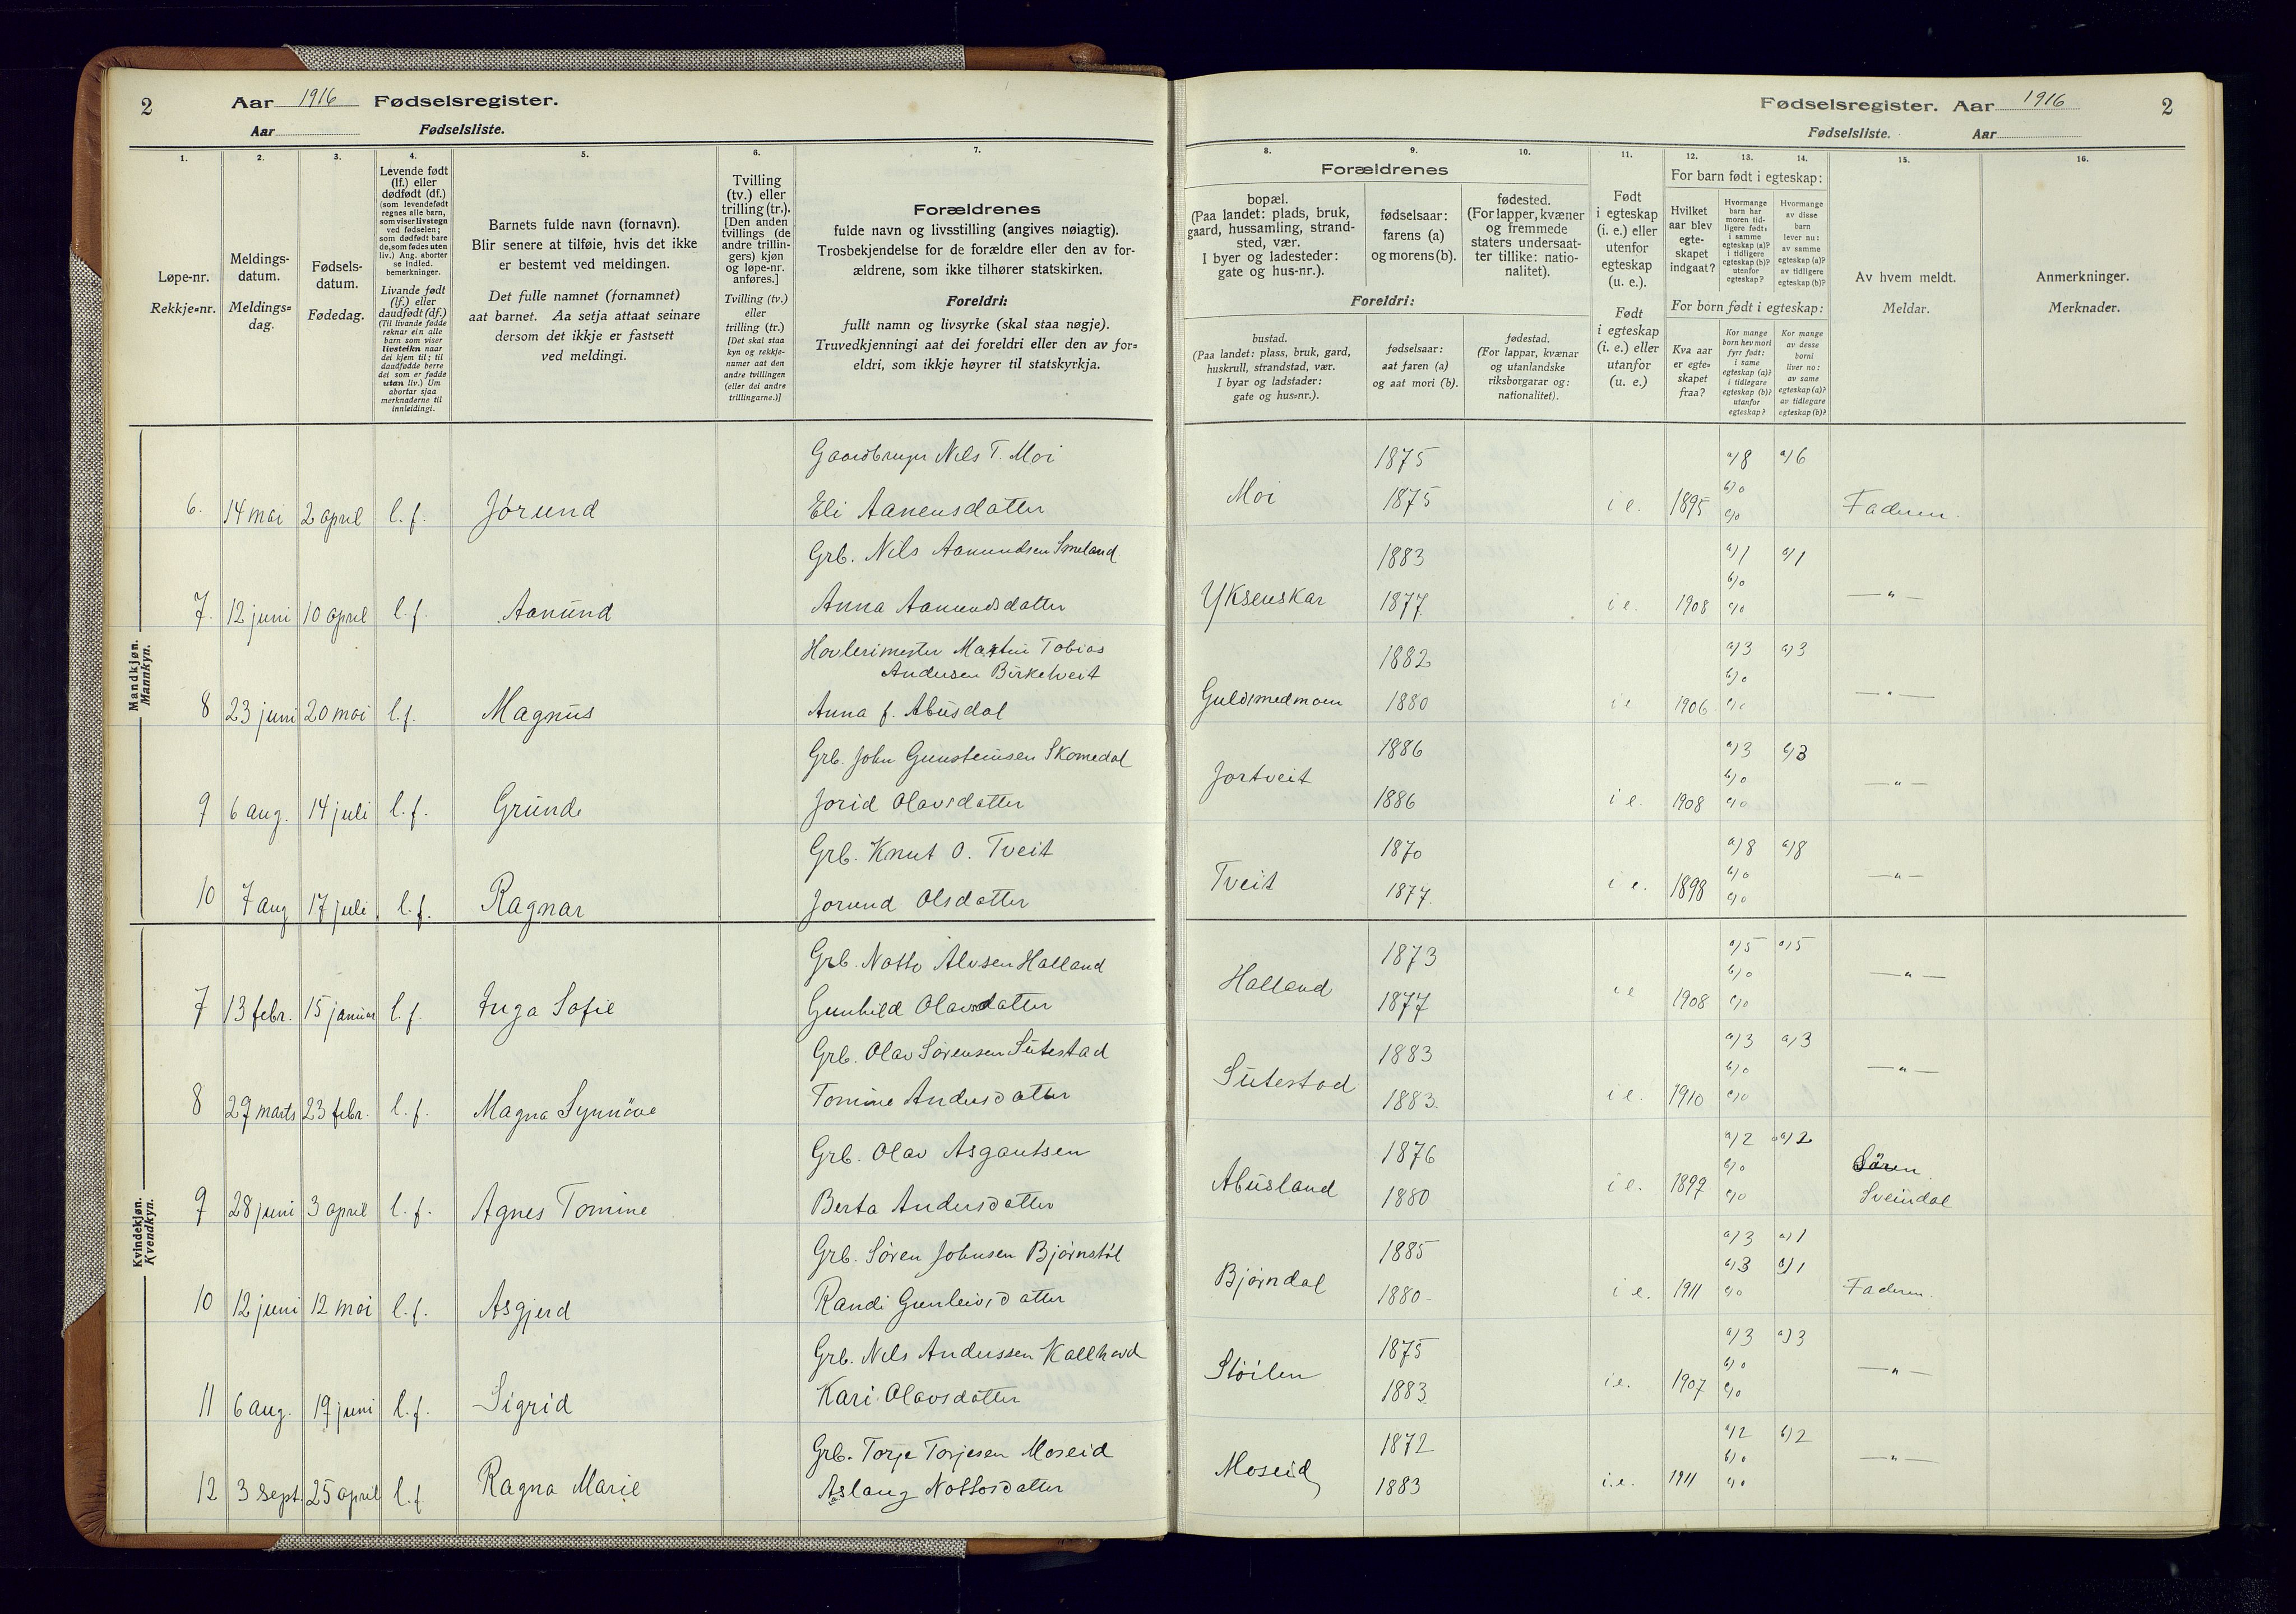 2 Aar 1916 Fødselsregister.
Aar Fødselsliste.
Fødselsregister. Aar 1916 2
Fødselsliste. Aar
1. 2. 3. 4. 5. 6. 7.
Løpe-nr.
Rekkje-nr.
Meldings-
datum.
Meldings-
dag.
Fødsels-
datum.
Fødedag.
Levende født
(lf.) eller
dødfødt (df.)
(som levendefødt
regnes alle barn,
som viser livstegn
ved fødselen;
som dødfødt bare
de, som fødes uten
liv.) Ang. aborter
se indled.
bemerkninger.
Livande født
(lf.) eller
daudfødt (df.)
(Til livande fødde
reknar ein alle
barn som viser
livsteikn naar
dei kjem til; til
daudfødde berre
dei som er fødde
utan liv.) Um
abortar sjaa
merknaderne til
innleidingi.
Barnets fulde navn (fornavn).
Blir senere at tilføie, hvis det ikke
er bestemt ved meldingen.
Det fulle namnet (fornamnet)
aat barnet. Aa setja attaat seinare
dersom det ikkje er fastsett
ved meldingi.
Tvilling
(tv.) eller
trilling (tr.).
[Den anden
tvillings (de
andre trillin-
gers) kjøn
og løpe-nr.
anføres.]
Tvilling (tv.)
eller
trilling (tr.)
[Det skal staa
kyn og rekkje-
numer aat den
andre tvillingen
(eller dei andre
trillingarne.)]
Forældrenes
fulde navn og livsstilling (angives nøiagtig).
Trosbekjendelse for de forældre eller den av for-
ældrene, som ikke tilhører statskirken.
Foreldri:
fullt namn og livsyrke (skal staa nøgje).
Truvedkjenningi aat dei foreldri eller den av for-
eldri, som ikkje høyrer til statskyrkja.
8. 9. 10. 11. 12. 13. 14. 15. 16.
Forældrenes
bopæl.
(Paa landet: plads, bruk,
gaard, hussamling, strand-
sted, vær.
I byer og ladesteder:
gate og hus-nr.).
fødselsaar:
farens (a)
og morens (b).
fødested.
(For lapper, kvæner
og fremmede
staters undersaat-
ter tillike: natio-
nalitet).
Foreldri:
bustad.
(Paa landet: plass, bruk, gard,
huskrull, strandstad, vær.
I byar og ladstader:
gate og hus-nr.).
fødselsaar:
aat faren (a)
og aat mori (b).
fødestad.
(For lappar, kvænar
og utanlandske
riksborgarar og:
nationalitet).
Født
i egteskap
(i. e.) eller
utenfor
egteskap
(u. e.).
Født
i egteskap
(i. e.) eller
utanfor
(u. e.)
For barn født i egteskap:
Hvilket
aar blev
egte-
skapet
indgaat?
Hvormange
barn har
moren tid-
ligere født:
i samme
egteskap (a)?
i tidligere
egteskap (b)?
utenfor
egteskap?
Hvormange
av disse
barn
lever nu:
av samme
egteskap (a)?
av tidligere
egteskap (b)?
For born født i egteskap:
Kva aar
er egte-
skapet
fraa?
Kor mange
born hev mori
fyrr født:
i same
egteskap (a)?
i tidlegare
egteskap (b)?
utanfor
egteskap?
Kor mange
av desse
borni
liver no:
av same
egteskap (a)?
av tidlegare
egteskap (b)?
Av hvem meldt.
Meldar.
Anmerkninger.
Merknader.
Mandkjøn.
Mannkyn.
Nils T. Moi 1875 a) 8 a) 6
6. 14 mai 2 april l. f. Jørund Eli Aanensdatter Moi 1875 i e. 1895 b) 0 c) 0 Faderen.
Grb. Nils Aanundsen Smeland 1883 a) 1 a) 1
7. 12 juni 10 april l. f. Aanund Anna Aanundsdatter Yksenskar 1877 i e. 1908 b) 0 c) 0 — " —
Martin Tobias 1882 a) 3 a) 3
Andersen Birketveit
8 23 juni 20 mai l. f. Magnus Anna f. Abusdal Guldsmedmoen 1880 i e 1906 b) 0 c) 0 — " —
Grb. John Gunsteinsen Skomedal 1886 a) 3 a) 3
9 6 aug. 14 juli l. f. Grunde Jorid Olavsdatter Jortveit 1886 i e. 1908 b) 0 c) 0 — " —
Grb. Knut O. Tveit 1870 a) 8 a) 8
10 7 aug 17 juli l. f. Ragnar Jorund Olsdatter Tveit 1877. i e. 1898 b) 0 c) 0 — " —
Kvindekjøn.
Kvendkyn.
Grb. Notto Alvsen Halland 1873 a) 5 a) 5
7 13 febr. 15 januar l. f. Inga Sofie Gunhild Olavsdatter Halland 1877 i e 1908 b) 0 c) 0 — " —
Grb. Olav Sørensen Sutestad 1883 a) 3 a) 3
8 29 marts 23 febr. l. f. Magna Synnöve Tomine Andersdatter Sutestad 1883. i e. 1910 b) 0 c) 0 — " —
Grb. Olav Asgautsen 1876 a) 2 a) 2
9 28 juni 3 april l. f. Agnes Tomine Berta Andersdatter Abusland 1880 i e. 1899 b) 0 c) 0 Sören
Sveindal
Grb. Søren Johnsen Bjørnstøl 1885 a) 3 a) 1
10 12 juni 12 mai l. f. Asgjerd Randi Gunleivsdatter Bjørndal 1880 i e. 1911 b) 3 b) 1 c) 0 Faderen.
Grb. Nils Anderssen Kallhovd 1875 a) 3 a) 3
11 6 aug. 19 juni l. f. Sigrid Kari Olavsdatter Støilen 1883 i e. 1907 b) 0 c) 0 — " —
Grb. Torje Torjesen Moseid 1872 a) 2 b) 2
12 3 sept. 25 april l. f. Ragna Marie Aslaug Nottosdatter Moseid 1883 i. e. 1911 b) 0 c) 0 — " —